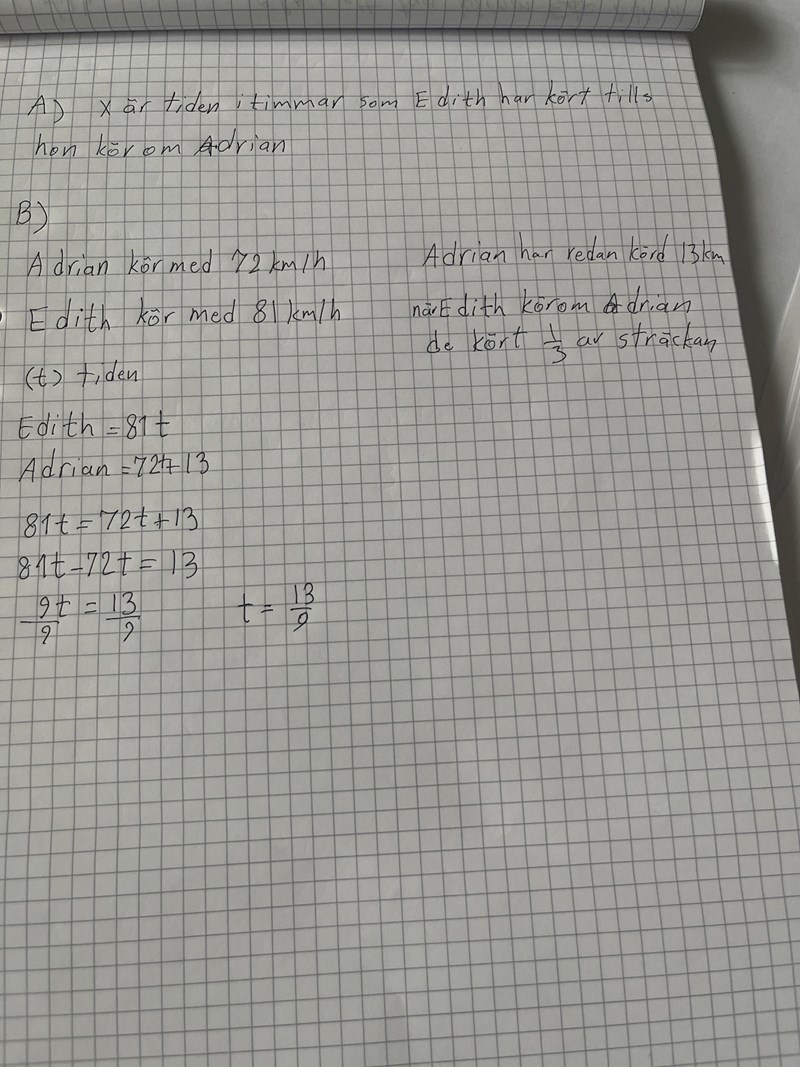 A) X är tiden i timmar som Edith har kört tills
hon kör om Adrian
B)
Adrian kör med 72 km/h
Edith kör med 81 km/h
(t) tiden
Edith = 81t
Adrian = 72t+13
81t = 72t+13
81t-72t = 13
9t/9 = 13/9 t = 13/9
Adrian har redan körd 13km
när Edith körom Adrian
de kört 1/3 av sträckan